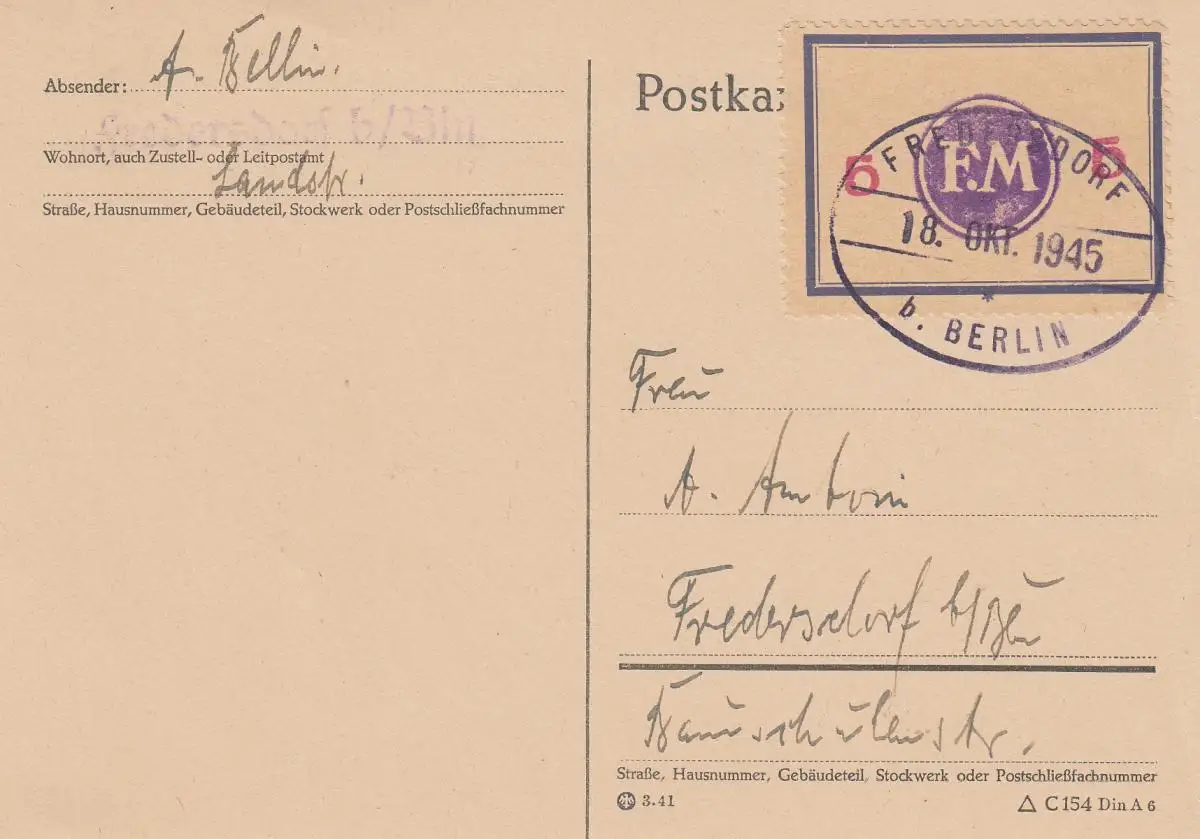 Absender: A. Bellin.
Fredersdorf b/Bln
Wohnort, auch Zustell- oder Leitpostamt
Landstr.
Straße, Hausnummer, Gebäudeteil, Stockwerk oder Postschließfachnummer
Postka
5 F.M 5
FREDERSDORF
18. OKT. 1945
*
b. BERLIN
Frau
A. Antoni
Fredersdorf b/Bln
Baumschulenstr.
Straße, Hausnummer, Gebäudeteil, Stockwerk oder Postschließfachnummer
3.41
C 154 Din A 6